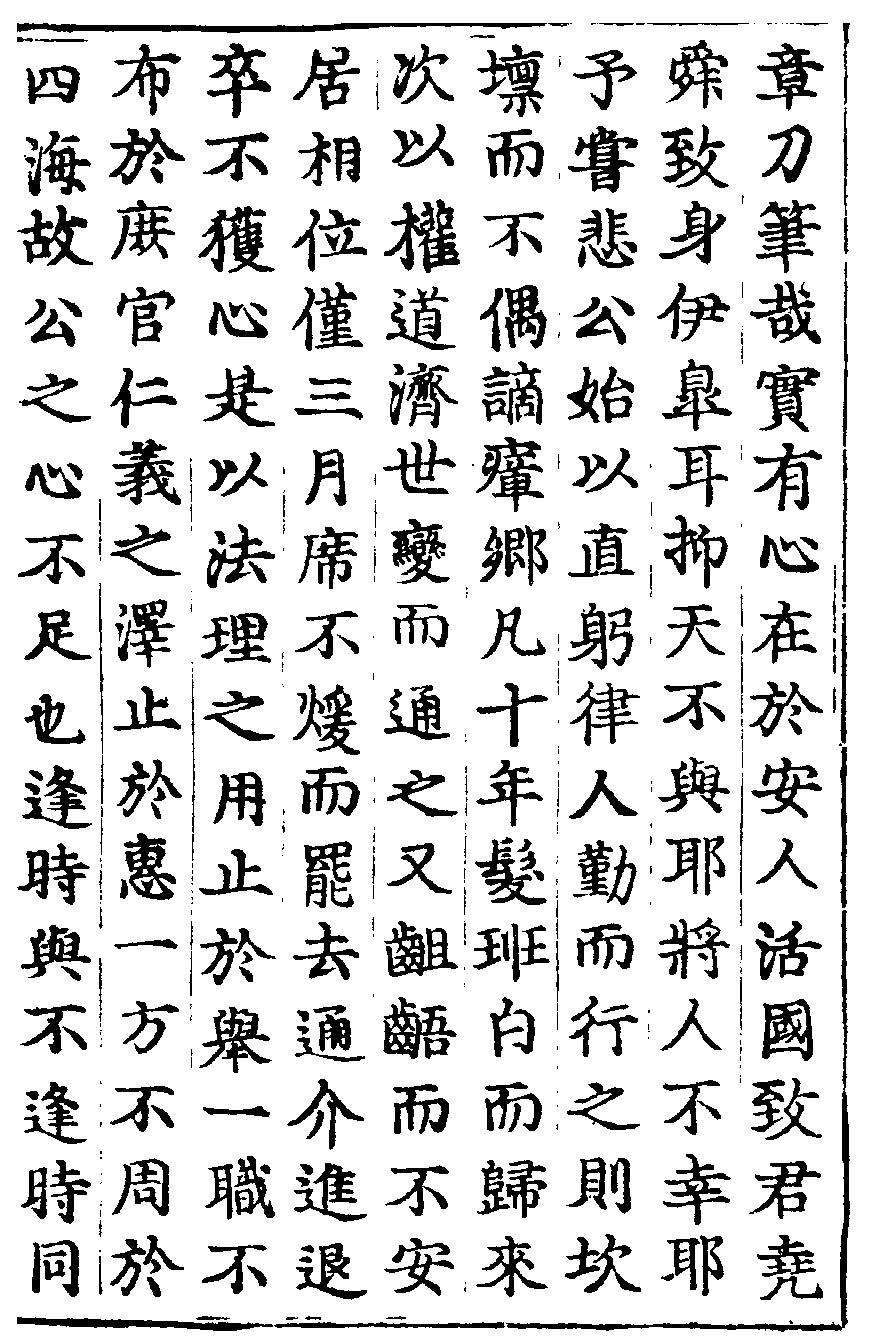 章刀筆哉實有心在於安人活國致君堯
舜致身伊臯耳抑天不與耶將人不幸耶
予嘗悲公始以直躬律人勤而行之則坎
壈而不偶謫瘴鄉凡十年髮班白而歸來
次以權道濟世變而通之又齟齬而不安
居相位僅三月席不煖而罷去通介進退
卒不獲心是以法理之用止於舉一職不
布於庶官仁義之澤止於惠一方不周於
四海故公之心不足也逢時與不逢時同